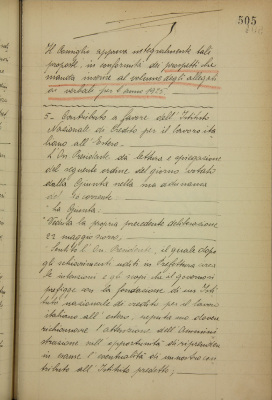 505
Il Consiglio approva integralmente tali
proposte, in conformità dei prospetti che
manda inserire al volume degli allegati
ai verbali per l'anno 1925.
5 - Contributo a favore dell'Istituto
Nazionale di Credito per il lavoro ita
liano all'Estero.
L'On. Presidente dà lettura e spiegazione
del seguente ordine del giorno votato
dalla Giunta nella sua adunanza
del 30 corrente
"La Giunta,
Vista la propria precedente deliberazione
22 maggio
Sentito l'On. Presidente, il quale dopo
gli schiarimenti avuti in Prefettura circa
le intenzioni e gli scopi che il governo si
prefigge con la fondazione di un Isti
tuto nazionale di credito per il lavoro
italiano all'estero, reputa suo dovere
richiamare l'attenzione dell'Ammini
strazione sull'opportunità di riprendere
in esame l'eventualità di un nostro con
tributo all'Istituto predetto;